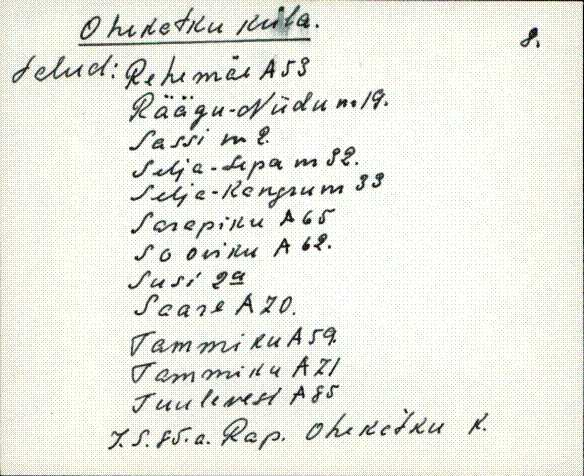 Oheketku küla.
8.
talud: Rehemäe A53
Räägu-Niidu m 19.
Sassi m 2.
Selja-Sepa m 32.
Selja-Kangrum 33
Sarapiku A 65
Sooviku A 62.
Susi 2a
Saare A 70.
Tammiku A 59.
Tammiku A 71
Tuulevesi A 85
J. S. 85. a. Rap. Oheketku k.